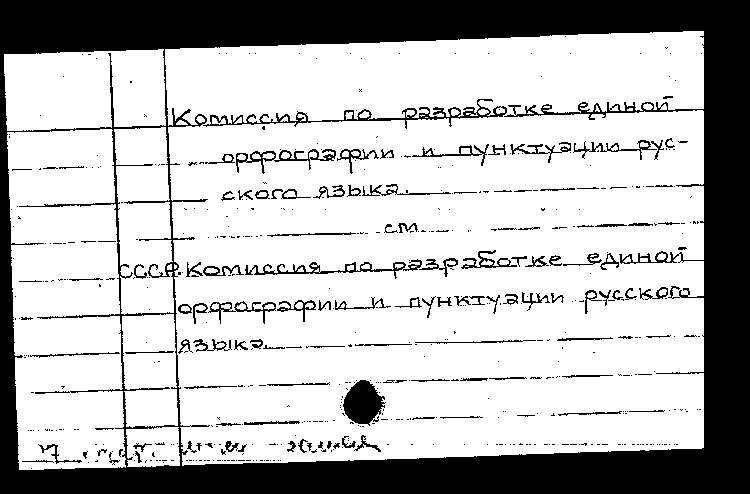 Комиссия по разработке единой
орфографии и пунктуации рус-
ского языка.
см.
СССР. Комиссия по разработке единой
орфографии и пунктуации русского
языка.